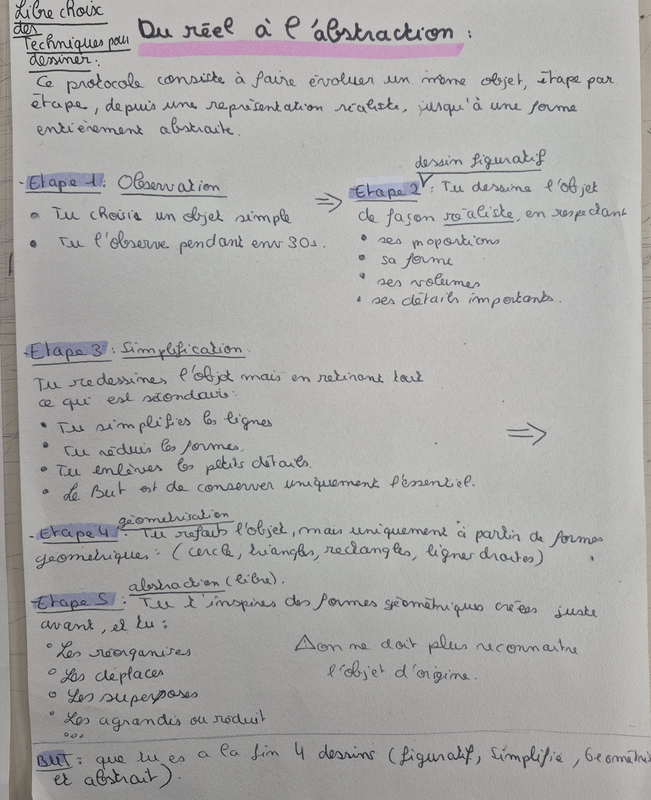 Libre choix
des
Techniques pour
dessiner.
Du réel à l'abstraction :
Ce protocole consiste à faire évoluer un même objet, étape par
étape, depuis une représentation réaliste, jusqu'à une forme
entièrement abstraite.
- Etape 1 : Observation
• Tu choisis un objet simple
• Tu l'observe pendant env 30s.
⇒
dessin figuratif
Etape 2 : Tu dessine l'objet
de façon réaliste, en respectant
• ses proportions
• sa forme
• ses volumes
• ses détails importants.
- Etape 3 : Simplification.
Tu redessines l'objet mais en retirant tout
ce qui est secondaire :
• Tu simplifies les lignes
• Tu réduis les formes.
• Tu enlèves les petits détails.
• Le But est de conserver uniquement l'essentiel.
⇒
géometrisation
- Etape 4 : Tu refais l'objet, mais uniquement à partir de formes
géometriques : (cercle, triangles, rectangles, lignes droites)
abstraction (libre).
- Etape 5 : Tu t'inspires des formes géométriques créées juste
avant, et tu :
° Les réorganises
° Les déplaces
° Les superposes
° Les agrandis ou réduit
°°°
⚠ on ne doit plus reconnaitre
l'objet d'origine.
BUT : que tu es a la fin 4 dessins (figuratif, Simplifié, Géométris
et abstrait).